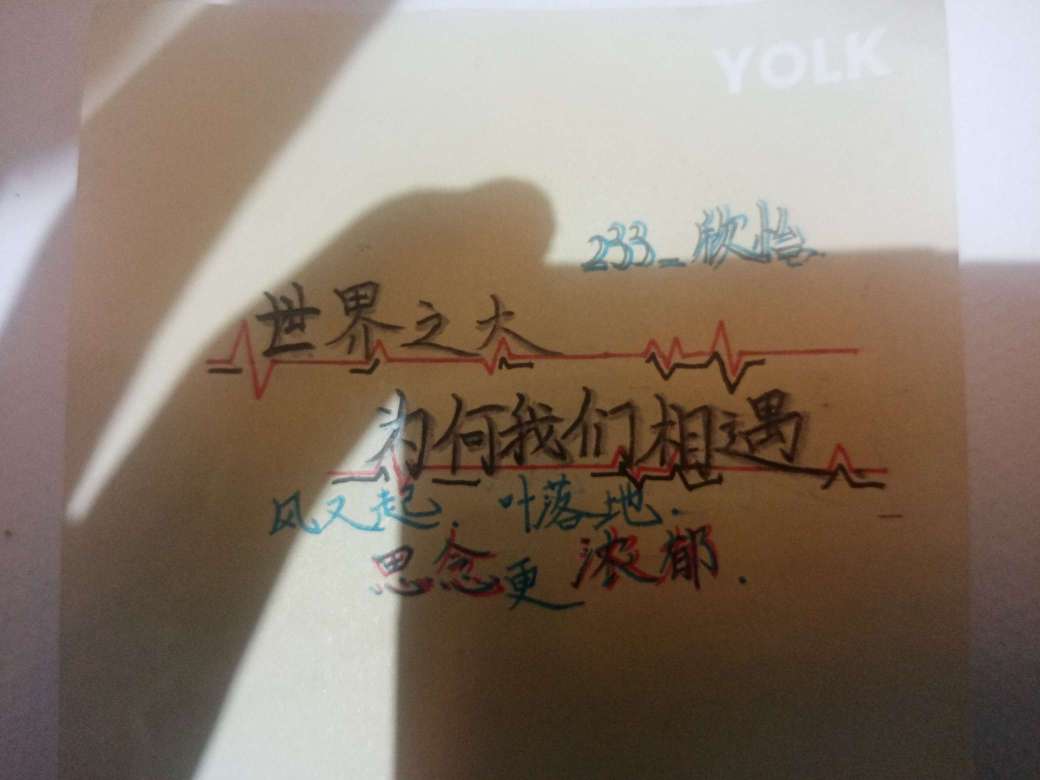 YOLK
233_欣怡
世界之大
为何我们相遇
风又起. 叶落地.
思念更浓郁.